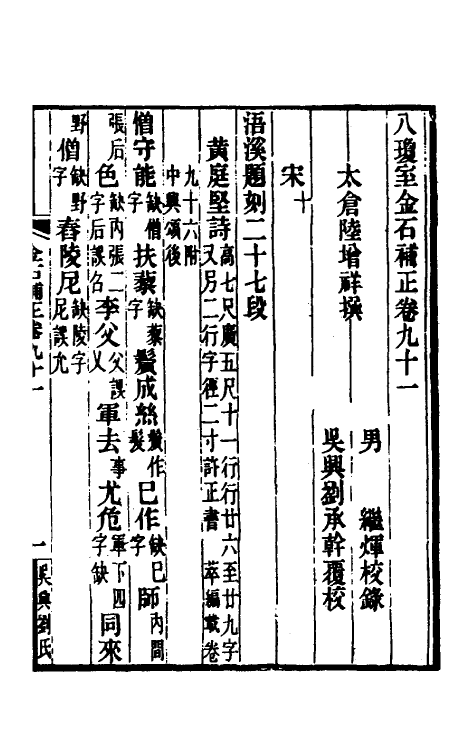 八瓊室金石補正卷九十一
男　繼煇校錄
太倉陸增祥撰
吳興劉承幹覆校
宋十
浯溪題刻二十七段
黃庭堅詩高七尺廣五尺十一行行廿六至廿九字又另二行字徑二寸許正書　萃編載卷
九十六附中興頌後
僧守能缺僧字扶藜缺藜字鬢成絲鬢作髮巳作缺巳字師內間
張后色缺內張二字后誤名李父父誤乂軍去事尤危軍下四字缺同來
野僧缺野字舂陵尼缺陵字尼誤允
金石補正卷九十一　一　吳興劉氏